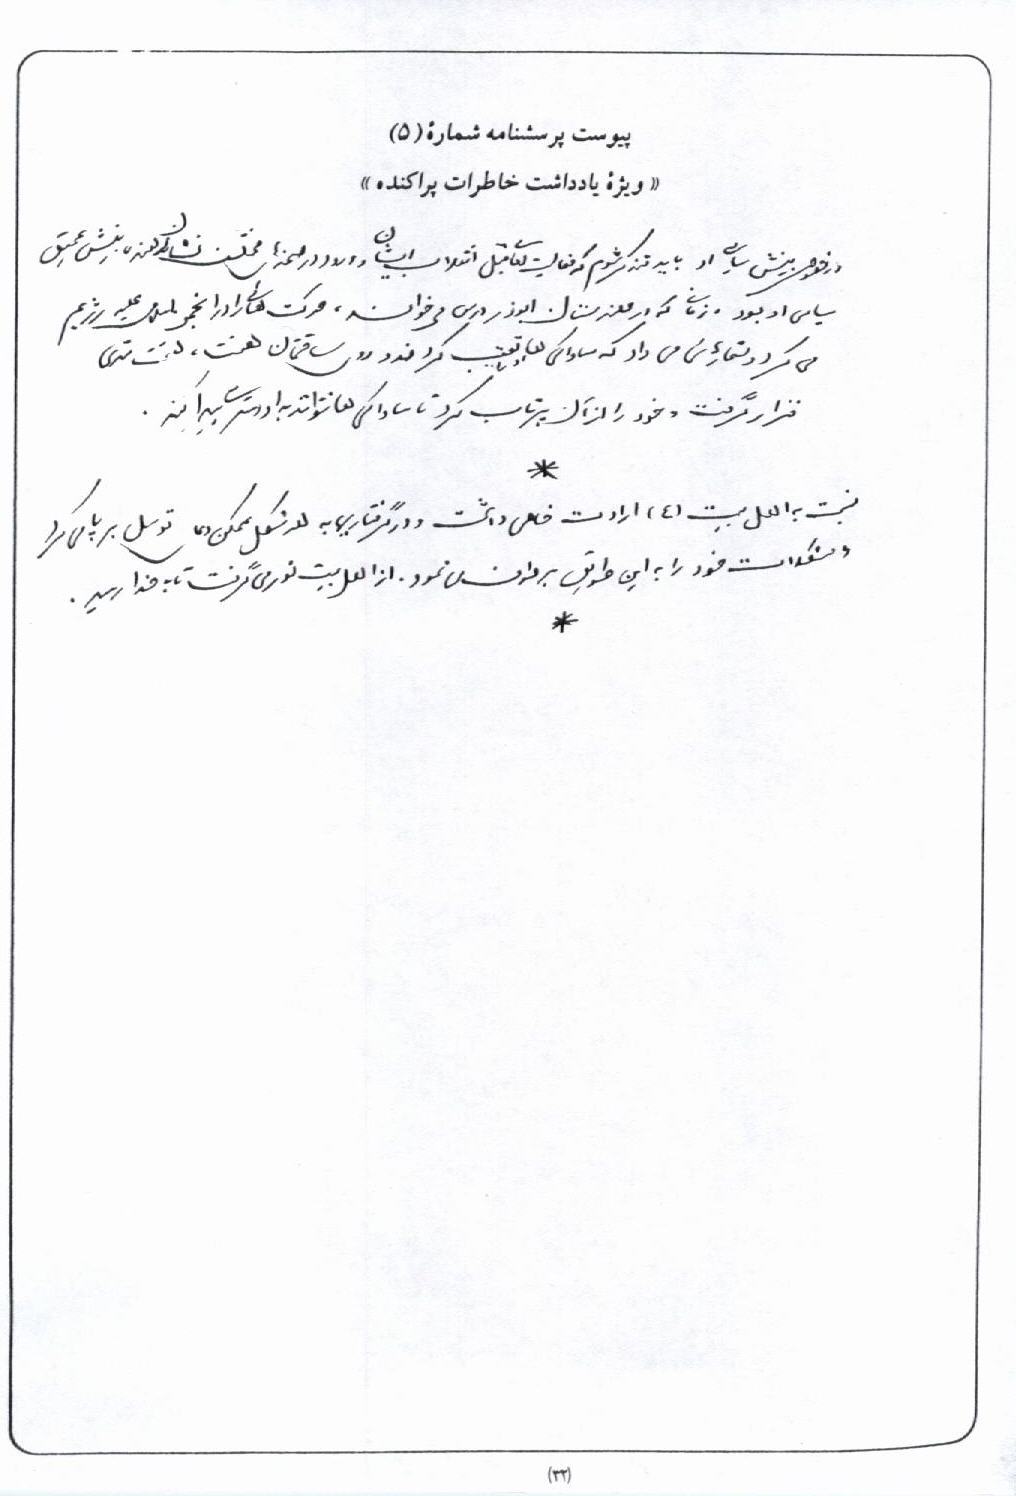 پیوست پرسشنامه شمارهٔ (۵)
« ویژهٔ یادداشت خاطرات پراکنده »
در خصوص بینش سیاسی او باید متذکر شوم که فعالیت های قبل انقلاب ایشان و ورود در صحنه های مختلف نشان دهنده بینش عمیق
سیاسی او بود . زمانی که در هنرستان ابوذر درس می خواند ، حرکت هایی را در انجمن اسلامی علیه رژیم
می کرد و شعارهائی می داد که ساواکی ها او را تعقیب کردند و روی ساختمان هفت ، هشت متری
قرار گرفت و خود را از آن پرتاب کرد تا ساواکی ها نتوانند به او دسترسی پیدا کنند .
*
نسبت به اهل بیت (ع) ارادت خاصی داشت و در گرفتاریها به هر شکل ممکن دعای توسل برپا می کرد
و مشکلات خود را به این طریق برطرف می نمود . از اهل بیت نور می گرفت تا به خدا رسید .
*
(۳۳)